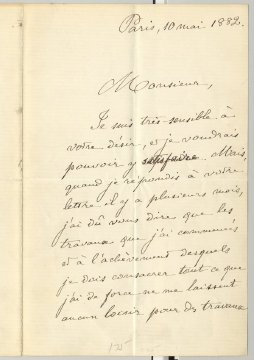 Paris, 10 mai 1882.
Monsieur,
Je suis très sensible à
votre désir, et je voudrais
pouvoir y satisfaire. Mais,
quand je répondis à votre
lettre il y a plusieurs mois,
j'ai dû vous dire que les
travaux que j'ai commencés
et à l'achèvement desquels
je dois consacrer tout ce que
j'ai de force ne me laissent
aucun loisir pour des travaux